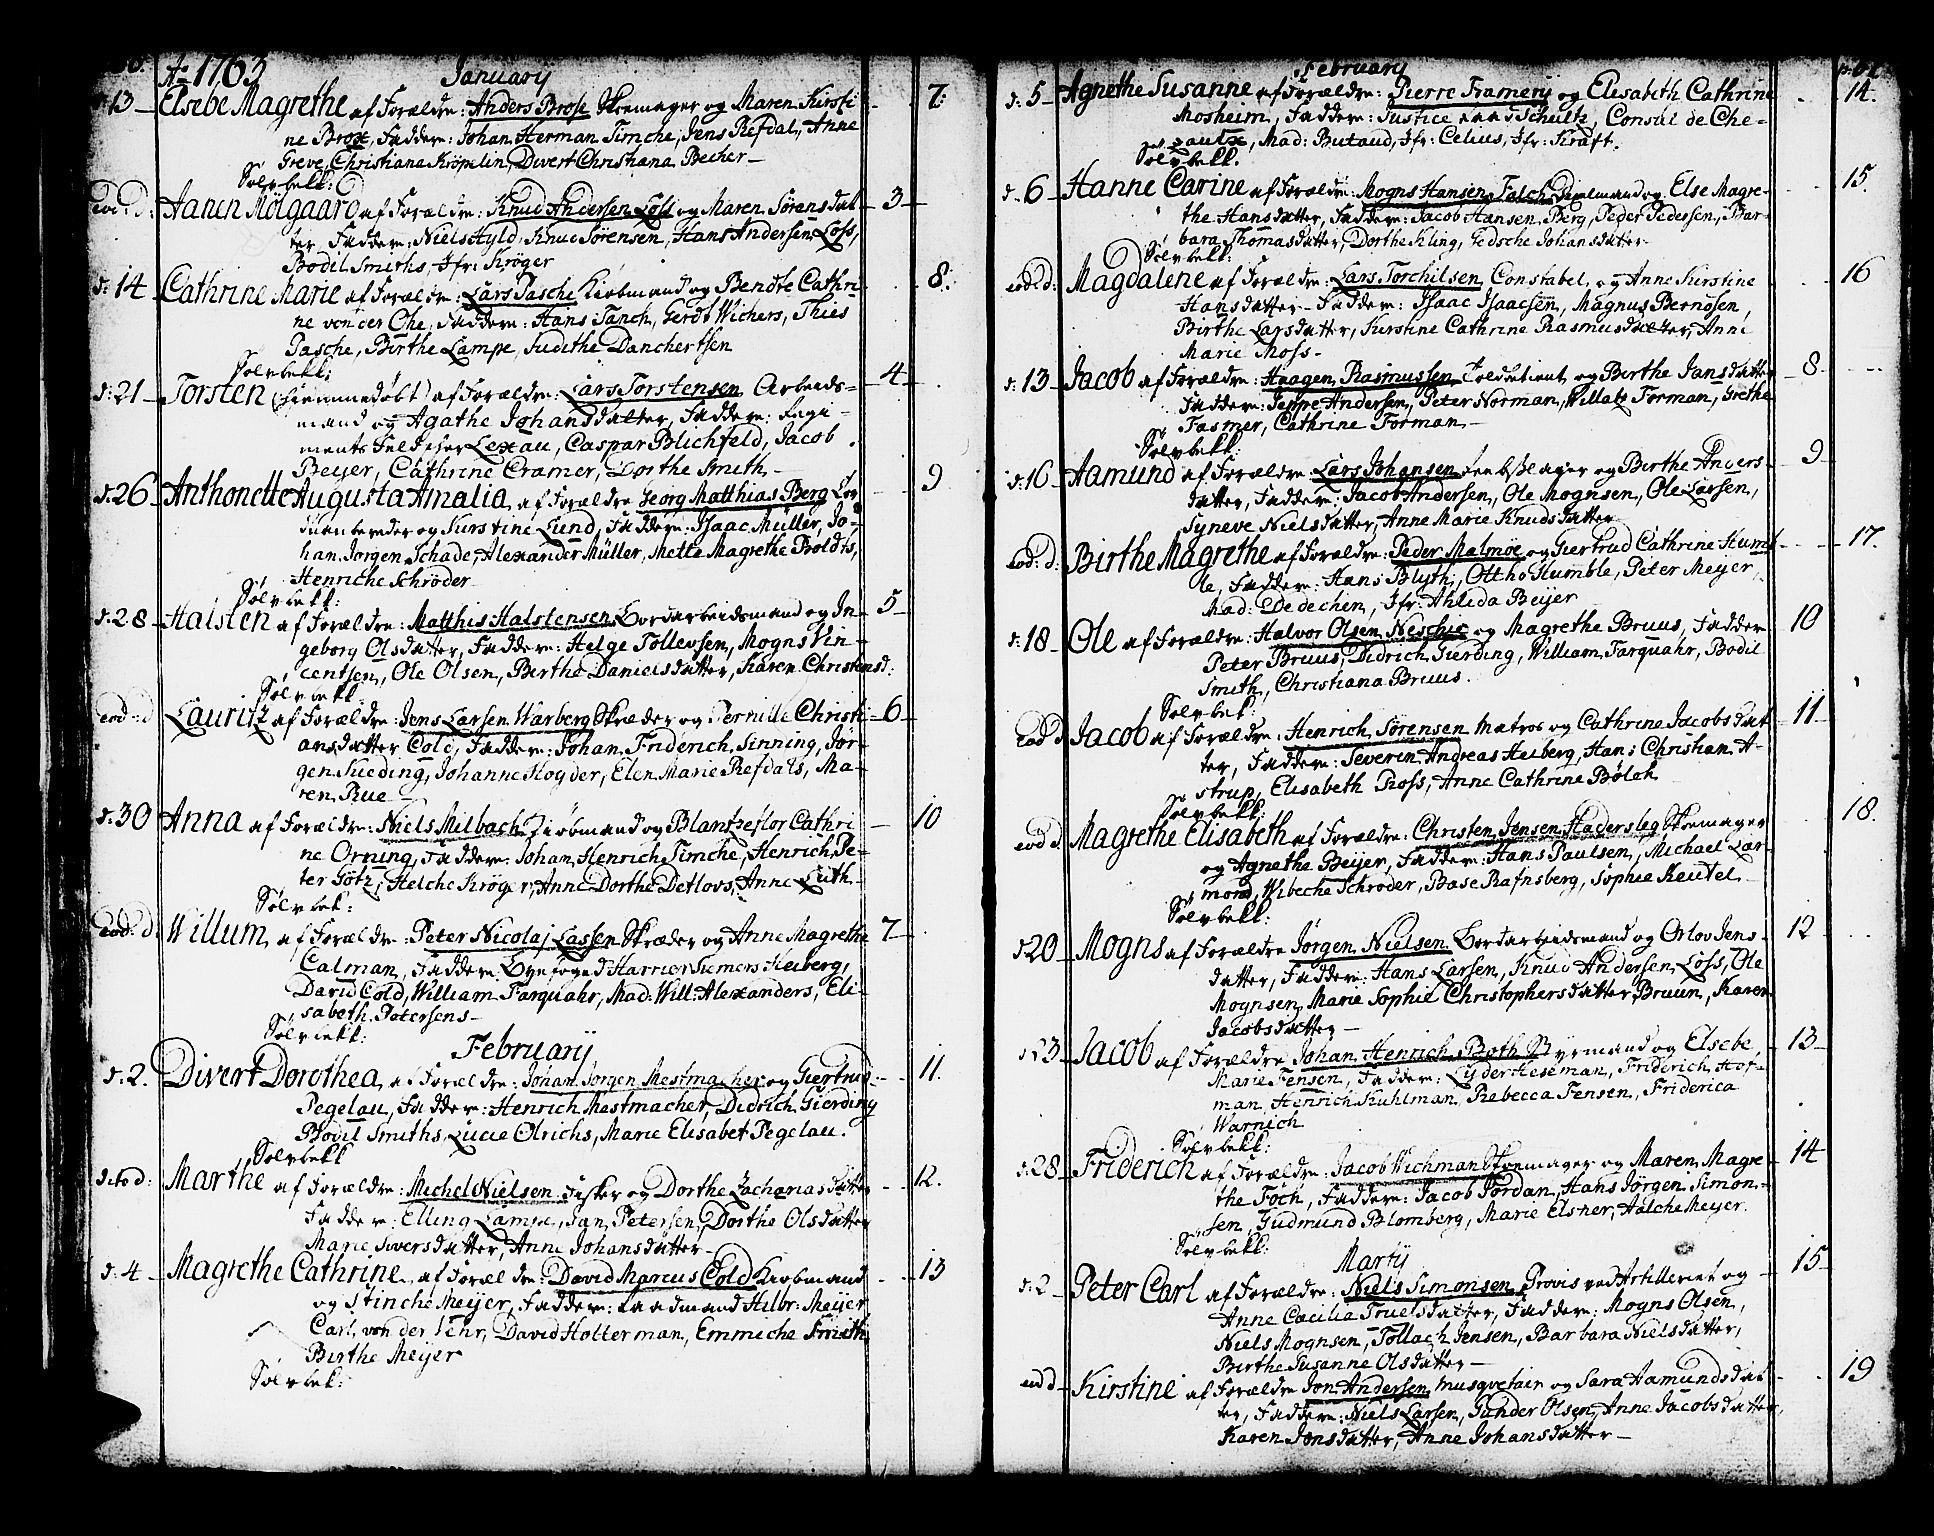 Ao 1763 January
d: 13 Elsebe Magrethe af Forældre: Anders Brose Skoemager og Maren Kirsti 7.
ne Brose, Faddere: Johan Herman Timche, Jens Refdal, Anne
Greve, Christiana Krömlin, Divert Christiana Becher
Sölvbekk:
eod: d: Aanen Mölgaard af Forældre: Knud Andersen Löss og Maren Sörensdat 3
ter, Faddere: Niels Hyld, Knud Sörensen, Hans Andersen Löss,
Bodil Smiths, Jfr: Kröger
d: 14 Cathrine Marie af Forældre: Lars Pasche Kiöbmand og Bendte Cathri- 8.
ne von der Ohe, Faddere: Hans Tanch, Gerdt Wichers, Thies
Pasche, Birthe Lampe, Judithe Danchertsen
Sölvbekk:
d: 21 Torsten (hiemmedöbt) af Forældre: Lars Torstensen Arbeids- 4
mand og Agathe Johansdatter, Faddere: Regi-
ments Feldskier Lexau, Caspar Blichfeld, Jacob
Beyer, Cathrine Cramer, Dorthe Smith
d: 26 Anthonette Augusta Amalia af Forældre Georg Matthias Berg 9
og Kirstine Lund, Faddere: Isaac Müller, Jo-
han Jörgen Schade, Alexander Müller, Mette Magrethe Boldts,
Henriche Schröder
Sölvbekk:
d: 28 Halsten af Forældre: Matthis Halstensen Bordarbeidsmand og In- 5
geborg Olsdatter, Faddere: Helge Tollevsen, Mogns Vin-
centsen, Ole Olsen, Berthe Danielsdatter, Karen Christensd:
Sölvbekk
eod: d Lauritz af Forældre: Jens Larsen Warberg Skræder og Pernille Christi- 6
ansdatter Cold, Faddere: Johan Friderich Sinning, Jör-
gen Sueding, Johanne Hoyder, Elen Marie Refdals, Ma-
ren Rue
d: 30 Anna af Forældre: Niels Milbach Kiöbmand og Blantzeflor Cathri- 10
ne Orning, Faddere: Johan Henrich Timche, Henrich Pe-
ter Götz, Helche Kröger, Anne Dorthe Detlovs, Anne Luth
Sölvbek:
eod: d. Willum af Forældre: Peter Nicolaj Lassen Skræder og Anne Magrethe 7
Calman, Faddere Byefoged Harrier Siemers Heiberg,
David Cold, William Farquahr, Mad: Will: Alexanders, Eli-
sabeth Petersens
Sölvbekk:
February
d: 2. Divert Dorothea af Forældre: Johan Jörgen Mestmacher og Giertrud 11.
Pegelau, Faddere: Henrich Mestmacher, Didrich Gierding
Bodil Smiths, Lucie Olrichs, Marie Elisabet Pegelau.
Sölvbekk
dito d: Marthe af Forældre: Michel Nielsen Fisker og Dorthe Zachariasdatter 12.
Faddere: Elling Lampe, Jan Petersen, Dorthe Olsdatter
Marie Siversdatter, Anne Johansdatter
d: 4 Magrethe Cathrine af Forældre: David Marcus Cold Kiöbmand 13
og Stinche Meyer, Faddere: Raadmand Hilbr: Meyer
Carl von der Vehr, David Holterman, Emmiche Smith
Birthe Meyer
Sölvbek:
February
d: 5 Agnethe Susanne af Forældre: Pierre Framery og Elisabeth Cathrine 14.
Mosheim, Faddere: Justice Raad Schultz, Consul de Che-
zaulx, Mad: Butaud, Jfr: Celius, Jfr: Kraft.
Sölvbekk.
d: 6 Hanne Carine af Forældre: Mogns Hansen Falch og Else Magre- 15.
the Hansdatter, Faddere: Jacob Hansen Berg, Peder Pedersen, Bar-
bara Thomasdatter, Dorthe Kling, Gedsche Johansdatter
Sölvbekk:
eod: d: Magdalene af Forældre: Lars Torchilsen Constabel og Anne Kirstine 16
Hansdatter Faddere: Isaac Isaacsen, Magnus Bernösen,
Birthe Larsdatter, Kirstine Cathrine Rasmusdatter, Anne
Marie Moss
d: 13 Jacob af Forældre: Haagen Rasmussen og Birthe Jansdatter 8
Faddere: Jeppe Andersen, Peter Norman, Willatz Forman, Grethe
Fasmer, Cathrine Forman
Sölvbekk:
d: 16 Aamund af Forældre Lars Johansen og Birthe Anders- 9
datter, Faddere: Jacob Andersen, Ole Mognsen, Ole Larsen,
Syneve Nielsdatter, Anne Marie Knudsdatter
eod: d: Birthe Magrethe af Forældre: Peder Malmöe og Giertrud Cathrine Hum 17.
le, Faddere: Hans Blyth, Ottho Humble, Peter Meyer,
Mad: Dedechen, Jfr: Ahleda Beyer
d: 18 Ole af Forældre: Halvor Olsen Nesche og Magrethe Bruus, Faddere 10
Peter Bruus, Didrich Gierding, William Farquahr, Bodil
Smith, Christiana Bruus.
Sölvbek:
eod d Jacob af Forældre: Henrich Sörensen Matros og Cathrine Jacobsdat 11
ter, Faddere: Severin Andreas Heiberg, Hans Christian A-
strup, Elisabeth Ross, Anne Cathrine Bölch
Sölvbekk:
eod d. Magrethe Elisabeth af Forældre: Christen Jensen Hadersleg Skoemager 18.
og Agnethe Beyer, Faddere: Hans Paulsen, Michael Lar-
mond, Wibeche Schröder, Base Rafnsberg, Sophie Reutel
Sölvbekk:
d 20 Mogns af Forældre Jörgen Nielsen Bordarbeidsmand og Orlov Jens- 12
datter, Faddere: Hans Larsen, Knud Andersen Löss, Ole
Mognsen, Marie Sophie Christophersdatter Bruun, Karen
Jacobsdatter
d 23 Jacob af Forældre Johan Henrich Both Byemand og Elsebe 13
Marie Fensen, Faddere: Lyder Heseman, Friderich Hof-
man Henrich Kuhlman, Rebecca Fensen, Friderica
Warnich
Sölvbekk:
d: 28 Friderich af Forældre: Jacob Wichman Skoemager og Maren Magre 14
the Foch, Faddere: Jacob Jordan, Hans Jörgen Simon-
sen, Gudmund Blomberg, Marie Elsner, Aalche Meyer.
Sölvbekk:
Martij
d: 2 Peter Carl af Forældre: Niels Simonsen Provis ved Artilleriet og 15
Anne Cæcilia Truelsdatter, Faddere: Mogns Olsen,
Niels Mognsen, Tollach Jensen, Barbara Nielsdatter,
Birthe Susanne Olsdatter
eod d Kirstine af Forældre Jon Andersen Musqvetair og Sara Aamundsdat 19
ter, Faddere: Niels Larsen, Gunder Olsen, Anne Jacobsdatter,
Karen Jonsdatter, Anne Johansdatter